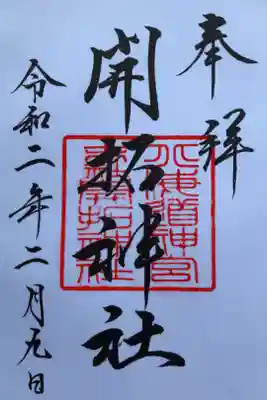 奉拝
開拓神社
北海道神宮
令和二年二月九日